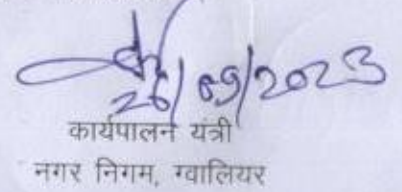 26/09/2023
कार्यपालन यंत्री
नगर निगम, ग्वालियर